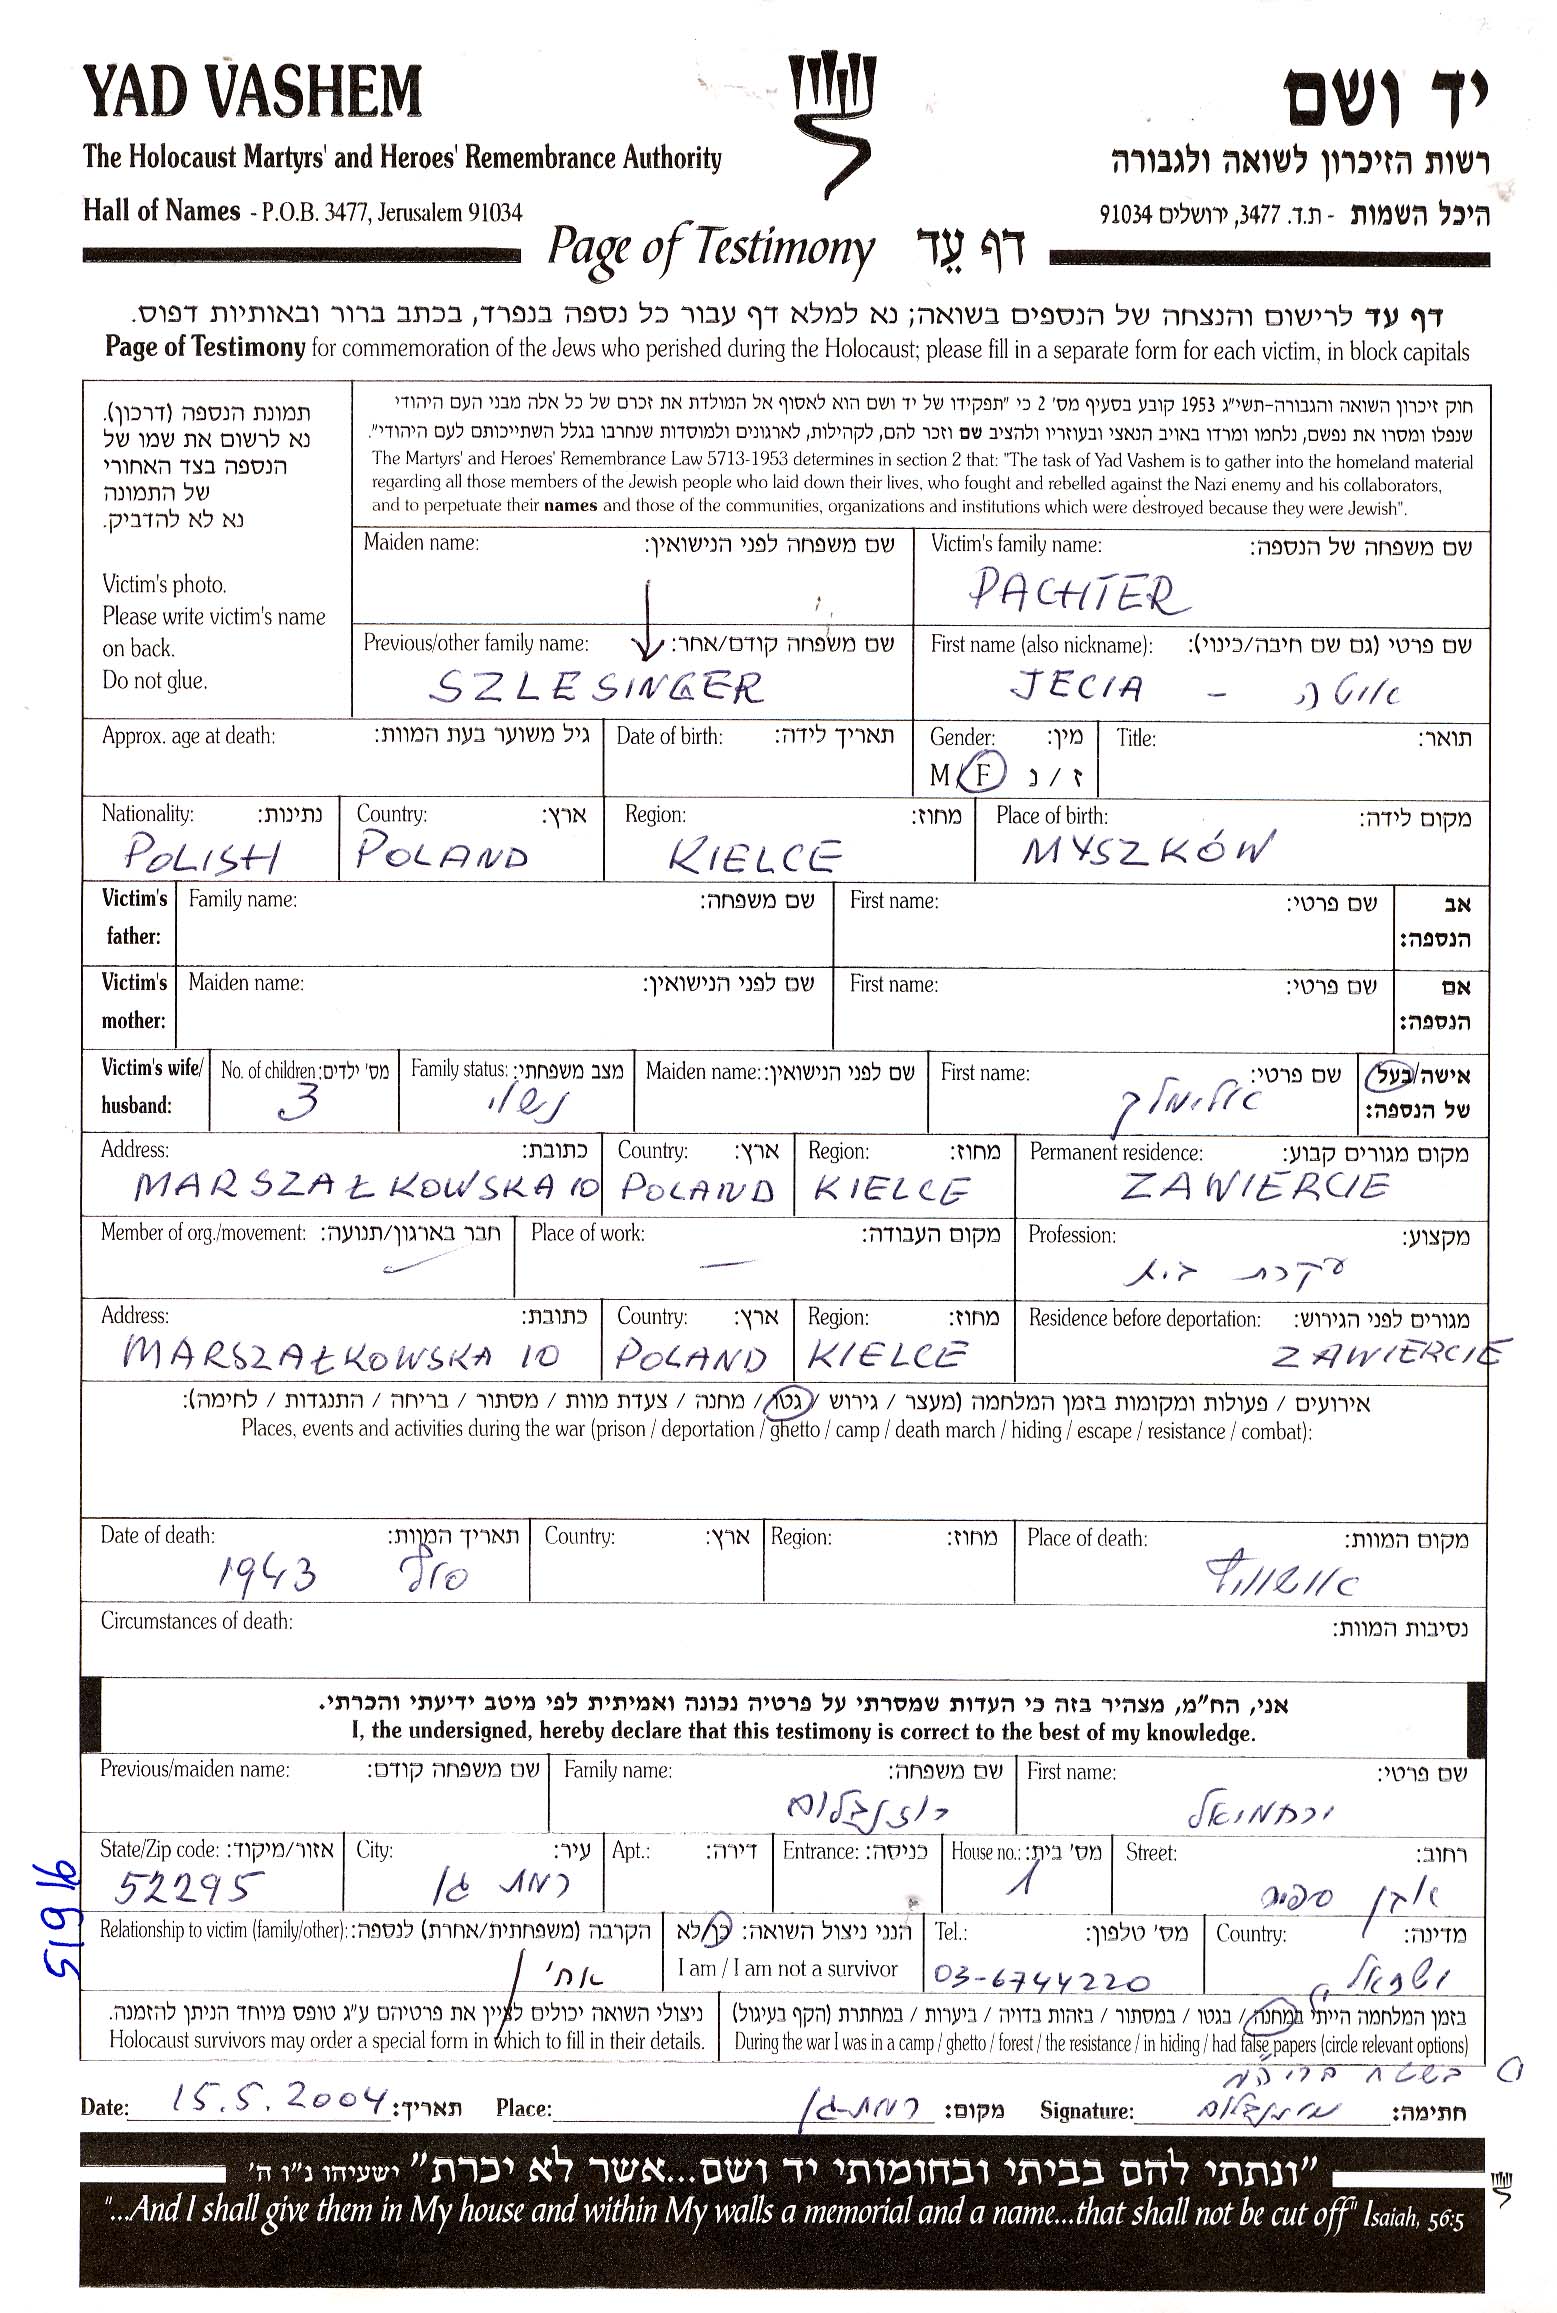 YAD VASHEM
יד ושם
The Holocaust Martyrs' and Heroes' Remembrance Authority
רשות הזיכרון לשואה ולגבורה
Hall of Names - P.O.B. 3477, Jerusalem 91034
היכל השמות - ת.ד. 3477, ירושלים 91034
Page of Testimony דף עֵד
דף עד לרישום והנצחה של הנספים בשואה; נא למלא דף עבור כל נספה בנפרד, בכתב ברור ובאותיות דפוס.
Page of Testimony for commemoration of the Jews who perished during the Holocaust; please fill in a separate form for each victim, in block capitals
תמונת הנספה (דרכון).
נא לרשום את שמו של
הנספה בצד האחורי
של התמונה
נא לא להדביק.
Victim's photo.
Please write victim's name
on back.
Do not glue.
חוק זיכרון השואה והגבורה-תשי"ג 1953 קובע בסעיף מס' 2 כי "תפקידו של יד ושם הוא לאסוף אל המולדת את זכרם של כל אלה מבני העם היהודי
שנפלו ומסרו את נפשם, נלחמו ומרדו באויב הנאצי ובעוזריו ולהציב שם וזכר להם, לקהילות, לארגונים ולמוסדות שנחרבו בגלל השתייכותם לעם היהודי".
The Martyrs' and Heroes' Remembrance Law 5713-1953 determines in section 2 that: "The task of Yad Vashem is to gather into the homeland material
regarding all those members of the Jewish people who laid down their lives, who fought and rebelled against the Nazi enemy and his collaborators,
and to perpetuate their names and those of the communities, organizations and institutions which were destroyed because they were Jewish".
Maiden name: שם משפחה לפני הנישואין: Victim's family name: שם משפחה של הנספה:
PACHTER
Previous/other family name: שם משפחה קודם/אחר: First name (also nickname): שם פרטי (גם שם חיבה/כינוי):
SZLESINGER JECIA -
Approx. age at death: גיל משוער בעת המוות: Date of birth: תאריך לידה: Gender: מין: Title: תואר:
M/F ז / נ
Nationality: נתינות: Country: ארץ: Region: מחוז: Place of birth: מקום לידה:
POLISH POLAND KIELCE MYSZKÓW
Victim's father: Family name: שם משפחה: First name: שם פרטי: אב הנספה:
Victim's mother: Maiden name: שם לפני הנישואין: First name: שם פרטי: אם הנספה:
Victim's wife/ husband: No. of children: מס' ילדים: Family status: מצב משפחתי: Maiden name: שם לפני הנישואין: First name: שם פרטי: אישה/בעל של הנספה:
3 נשוי אלימלך
Address: כתובת: Country: ארץ: Region: מחוז: Permanent residence: מקום מגורים קבוע:
MARSZAŁKOWSKA 10 POLAND KIELCE ZAWIERCIE
Member of org./movement: חבר בארגון/תנועה: Place of work: מקום העבודה: Profession: מקצוע:
— עקרת בית
Address: כתובת: Country: ארץ: Region: מחוז: Residence before deportation: מגורים לפני הגירוש:
MARSZAŁKOWSKA 10 POLAND KIELCE ZAWIERCIE
אירועים / פעולות ומקומות בזמן המלחמה (מעצר / גירוש / גטו / מחנה / צעדת מוות / מסתור / בריחה / התנגדות / לחימה):
Places, events and activities during the war (prison / deportation / ghetto / camp / death march / hiding / escape / resistance / combat):
Date of death: תאריך המוות: Country: ארץ: Region: מחוז: Place of death: מקום המוות:
1943 סוף אושוויץ
Circumstances of death: נסיבות המוות:
אני, הח"מ, מצהיר בזה כי העדות שמסרתי על פרטיה נכונה ואמיתית לפי מיטב ידיעתי והכרתי.
I, the undersigned, hereby declare that this testimony is correct to the best of my knowledge.
Previous/maiden name: שם משפחה קודם: Family name: שם משפחה: First name: שם פרטי:
רוזנבלום ירחמיאל
State/Zip code: אזור/מיקוד: City: עיר: Apt.: דירה: Entrance: כניסה: House no.: מס' בית: Street: רחוב:
52295 רמת גן 1 אבן ספיר
Relationship to victim (family/other): הקרבה (משפחתית/אחרת) לנספה: הנני ניצול השואה: כן/לא Tel.: מס' טלפון: Country: מדינה:
I am / I am not a survivor 03-6744220 ישראל
ניצולי השואה יכולים לציין את פרטיהם ע"ג טופס מיוחד הניתן להזמנה. בזמן המלחמה הייתי במחנה / בגטו / במסתור / בזהות בדויה / ביערות / במחתרת (הקף בעיגול)
Holocaust survivors may order a special form in which to fill in their details. During the war I was in a camp / ghetto / forest / the resistance / in hiding / had false papers (circle relevant options)
בשטח בריה"מ
Date: 15.5.2004 תאריך: Place: רמת-גן מקום: Signature: רוזנבלום חתימה:
"ונתתי להם בביתי ובחומותי יד ושם...אשר לא יכרת" ישעיהו נ"ו ה'
"...And I shall give them in My house and within My walls a memorial and a name...that shall not be cut off" Isaiah, 56:5